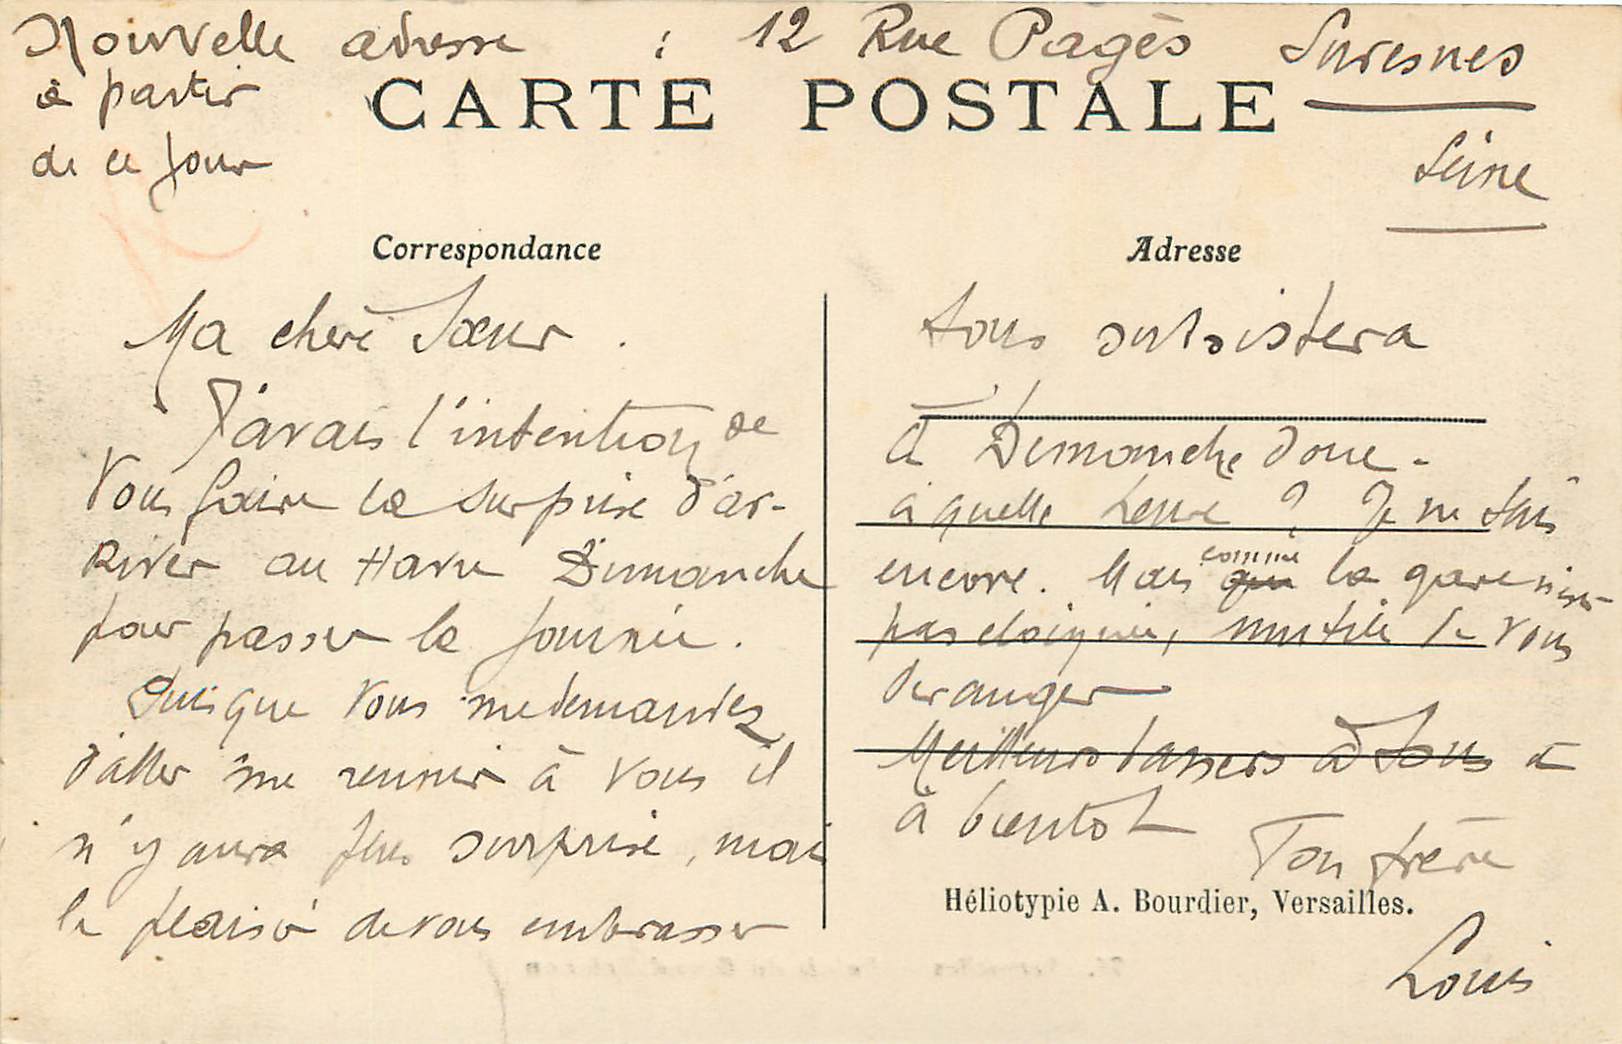 Nouvelle adresse : 12 Rue Pagès Suresnes
à partir
de ce jour
Seine
CARTE POSTALE
Correspondance
Ma chère Sœur.
J'avais l'intention de
vous faire la surprise d'ar-
river au Havre Dimanche
pour passer la journée.
Puisque vous me demandez
d'aller me réunir à vous il
n'y aura plus surprise, mais
le plaisir de vous embrasser
Adresse
tous subsistera
à Dimanche donc -
à quelle heure ? Je ne sais
encore. Mais comme la gare n'est
pas éloignée, inutile de vous
déranger
Meilleurs baisers à tous et
à bientôt
Ton frère
Héliotypie A. Bourdier, Versailles.
Louis